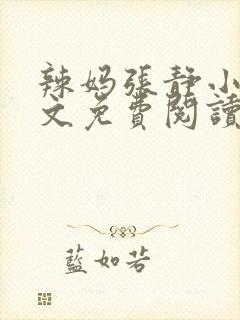 辣妈張静小
文免費閱讀
藍如若